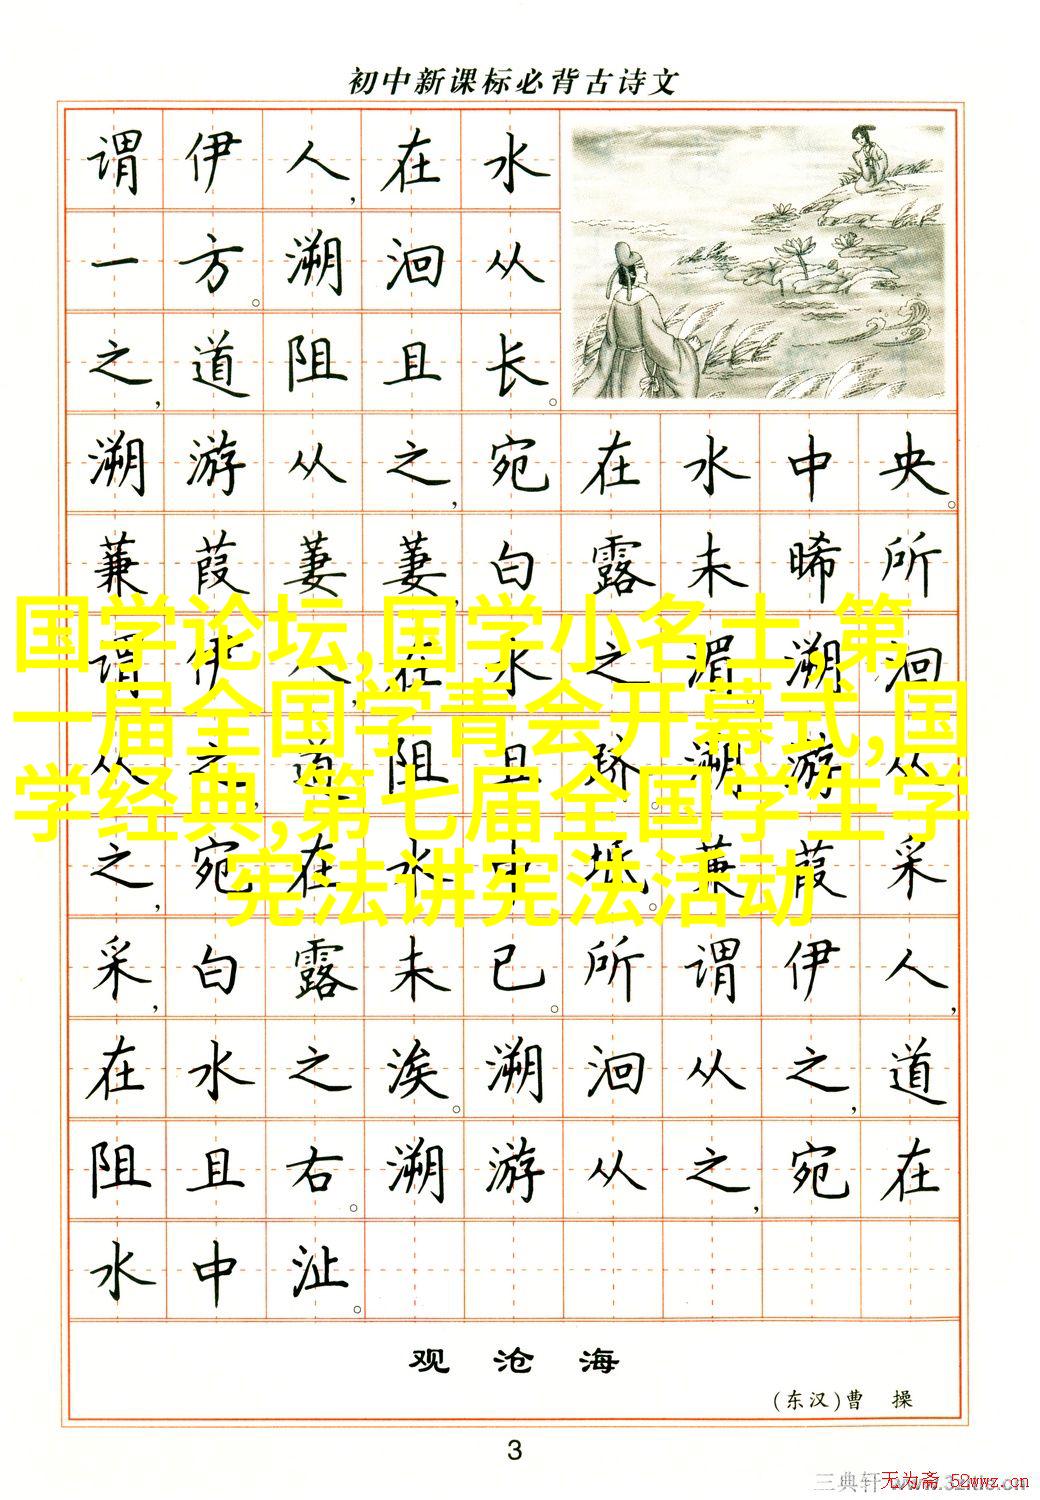 初中新课标必背古诗文
谓伊人,在水
一方。溯洄从
之,道阻且长。
溯游从之,宛在水中央。
蒹葭萋萋,白露未晞所
谓伊人,在水之湄。溯洄
从之,道阻且跻。溯游从
之,宛在水中坻。蒹葭采
采,白露未已。所谓伊人,
在水之涘。溯洄从之,道
阻且右。溯游从之,宛在
水中沚。
国学论坛,国学小名士,第
一届全国学青会开幕式,国
学经典,第七届全国学生学
宪法讲宪法活动
观沧海
(东汉)曹操
3
三典轩
无为斋 52wwz.cn